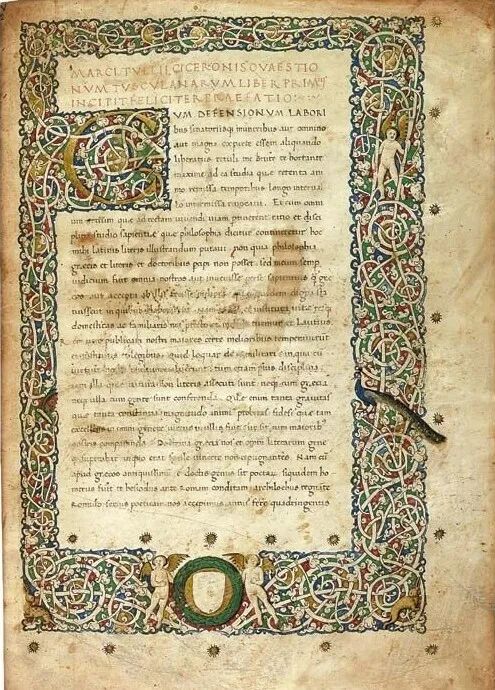 MARCI TVLLII CICERONIS QVAESTIO
NVM TVSCVLANARVM LIBER PRIMꝰ
INCIPIT FELICITER PRAEFATIO:
CVM DEFENSIONVM LABORI
bus senatoriisq; muneribus aut omnino
aut magna ex parte essem aliquando
liberatus retuli me brute te hortante
maxime ad ea studia que retenta ani
mo remissa temporibus longo interual
lo intermissa reuocaui. Et cum omni
um artium que ad rectam uiuendi uiam pertinerent ratio et disci
plina studio sapientie que philosophia dicitur contineretur hoc
mihi latinis litteris illustrandum putaui non quia philosophia
grecis et literis et doctoribus percipi non posset sed meum semper
iudicium fuit omnia nostros aut inuenisse per se sapientius q̃ gre
cos aut accepta ab illis fecisse meliora que quidem digna sta
tuissent in quibus elaborarent. Nam mores et instituta uite resq;
domesticas ac familiaris nos melius tuemur et Lautius
rem uero publicam nostri maiores certe melioribus temperauerunt
et institutis et legibus. Quid loquar de re militari in qua cu
uirtute nostri multum ualuerunt tum etiam plus disciplina
iam illa que natura non literis assecuti sunt neq; cum grecia
neq; ulla cum gente sunt conferenda. Que enim tanta grauitas
que tanta constantia magnitudo animi probitas fides que tam
excellens in omni genere uirtus in ullis fuit ut sit cum maioribꝰ
nostris comparanda. Doctrina grecia nos et omni literarum gene
re superabat in quo erat facile uincere non repugnantes. Nam cũ
apud grecos antiquissimum e doctis genus sit poetarum siquidem ho
merus fuit et hesiodus ante Romam conditam archilochus regnante
Romulo serius poeticam nos accepimus annis fere quadringentis